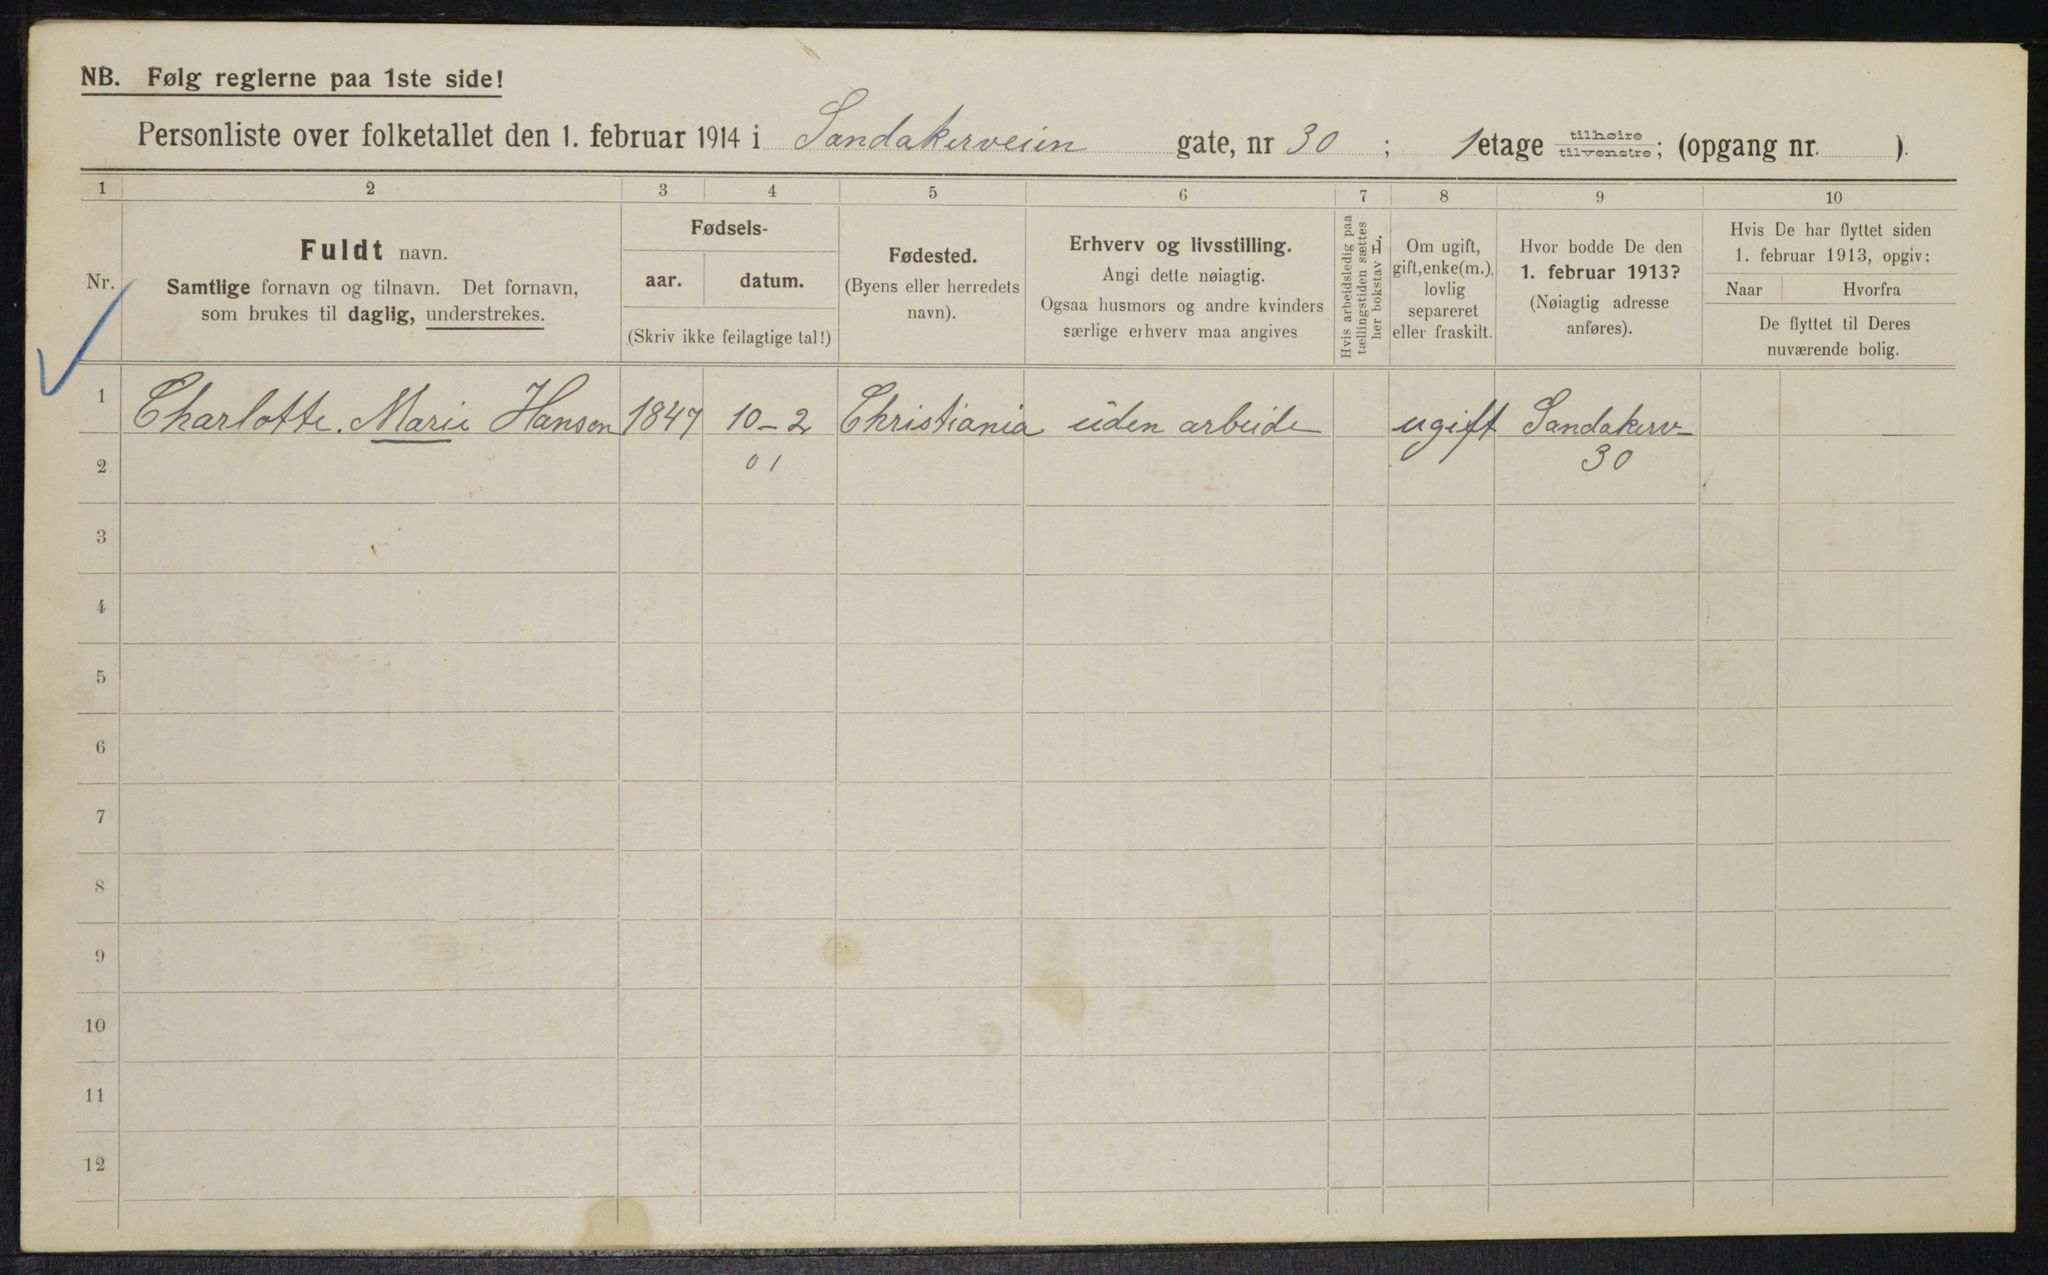 NB. Følg reglerne paa 1ste side!
Personliste over folketallet den 1. februar 1914 i Sandakerveien gate, nr 30 ; 1 etage tilhøire tilvenstre; (opgang nr. ).
1 2 3 4 5 6 7 8 9 10
Nr.
Fuldt navn.
Samtlige fornavn og tilnavn. Det fornavn,
som brukes til daglig, understrekes.
Fødsels-
aar. datum.
(Skriv ikke feilagtige tal!)
Fødested.
(Byens eller herredets
navn).
Erhverv og livsstilling.
Angi dette nøiagtig.
Ogsaa husmors og andre kvinders
særlige erhverv maa angives
Hvis arbeidsledig paa
tællingstiden sættes
her bokstav L.
Om ugift,
gift, enke(m.),
lovlig
separeret
eller fraskilt.
Hvor bodde De den
1. februar 1913?
(Nøiagtig adresse
anføres).
Hvis De har flyttet siden
1. februar 1913, opgiv:
Naar Hvorfra
De flyttet til Deres
nuværende bolig.
1 Charlotte. Marie Hansen 1847 10-2 Christiania uden arbeide ugift Sandakerv-
2 01 30
3
4
5
6
7
8
9
10
11
12